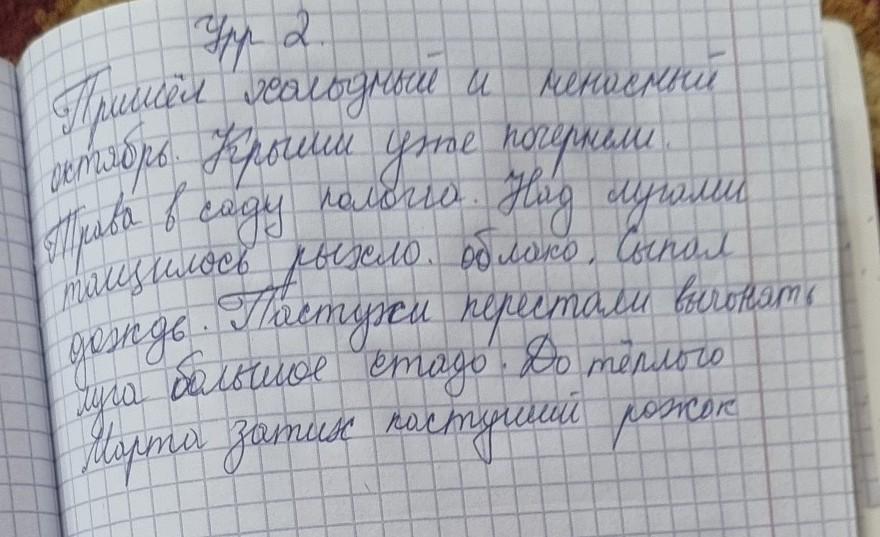 Упр 2.
Пришёл холодный и ненасный
октябрь. Крыши уже почернели.
Трава в саду полегла. Над лугами
тащилось рыхло. облако. Сыпал
дождь. Пастухи перестали выгонять
луга большое стадо. До тёплого
Марта затих пастуший рожок